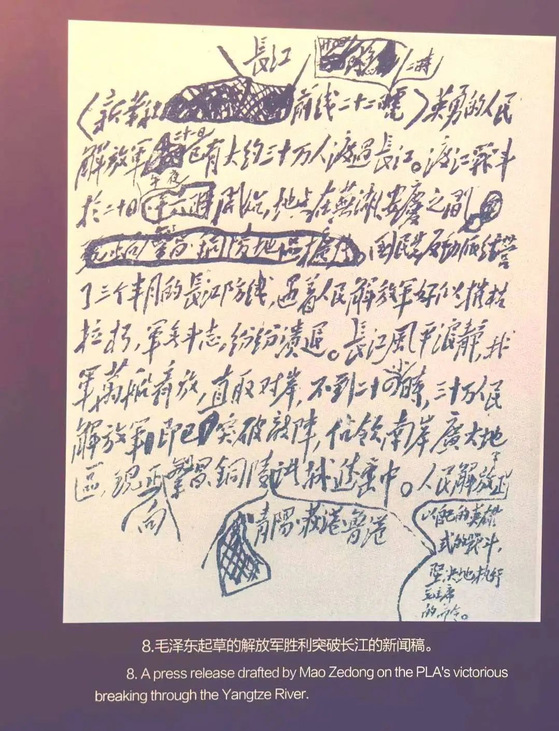 長江 二时
(新華社 前线二十二日電)英勇的人民
二十一日
解放军 已有大约三十万人渡過長江。渡江戰斗
午夜
於二十日 開始,地点在蕪湖、安慶之間
國民党反動派經營
了三个半月的長江防线,遇着人民解放军好似摧枯
拉朽,军无斗志,纷纷潰退。長江風平浪静,我
军萬船齊放,直取对岸,不到二十四小時,三十万人民
解放军即已突破敵阵,佔領南岸廣大地
區,现正向繁昌、銅陵 進擊中。人民解放军正
青陽、荻港、魯港
以 的英雄
式的戰斗,
堅决地执行
毛主席
的命令。
8.毛泽东起草的解放军胜利突破长江的新闻稿。
8. A press release drafted by Mao Zedong on the PLA's victorious
breaking through the Yangtze River.